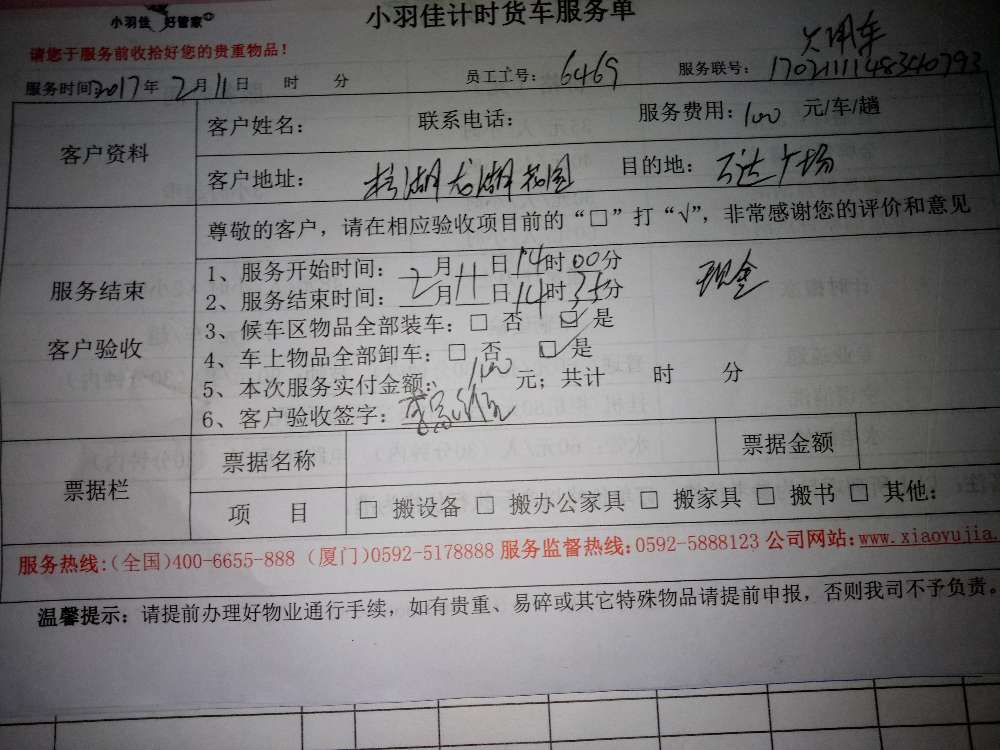 小羽佳 好管家
小羽佳计时货车服务单
请您于服务前收拾好您的贵重物品！
服务时间2017年2月11日 时 分 员工工号：6469 服务联号：1702111148340793
客户资料
客户姓名： 联系电话： 服务费用：100 元/车/趟
客户地址： 龙湖花园 目的地：万达广场
尊敬的客户，请在相应验收项目前的“□”打“√”，非常感谢您的评价和意见
服务结束
客户验收
1、服务开始时间：2月11日14时00分
现金
2、服务结束时间：2月11日14时35分
3、候车区物品全部装车：□ 否 ☑是
4、车上物品全部卸车：□ 否 ☑是
5、本次服务实付金额：100元；共计 时 分
6、客户验收签字：
票据栏
票据名称 票据金额
项 目 □ 搬设备 □ 搬办公家具 □ 搬家具 □ 搬书 □ 其他：
服务热线:(全国)400-6655-888 (厦门)0592-5178888 服务监督热线:0592-5888123 公司网站:www.xiaoyujia.
温馨提示：请提前办理好物业通行手续，如有贵重、易碎或其它特殊物品请提前申报，否则我司不予负责。